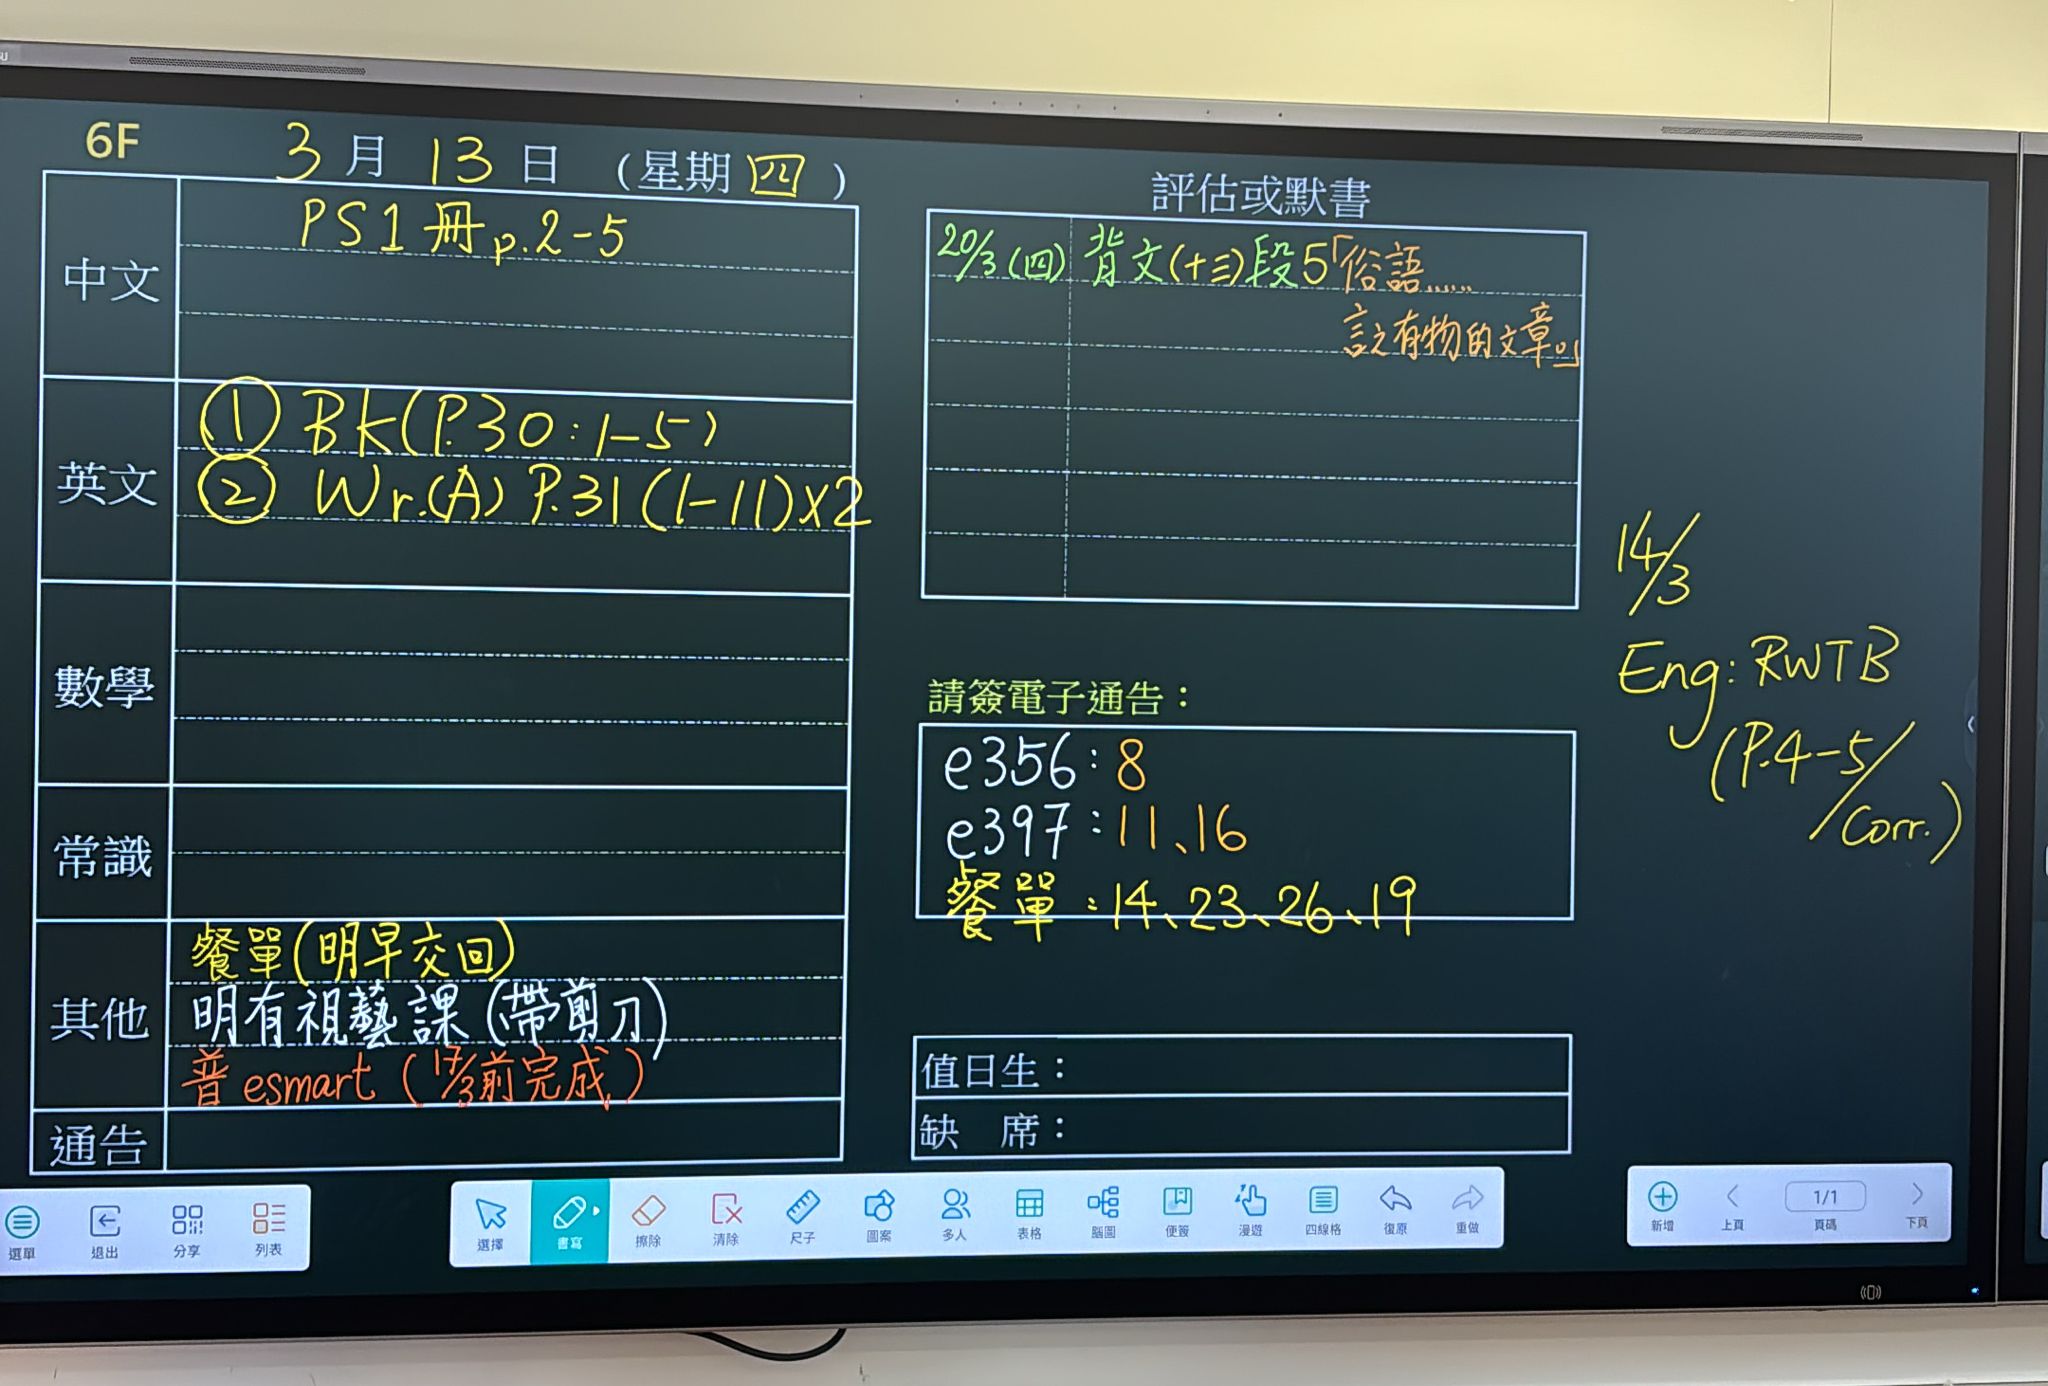 6F 3月13日（星期四）
中文
PS1冊 p.2-5
英文
① BK(P.30:1-5)
② Wr.(A) P.31(1-11)x2
數學
常識
其他
餐單(明早交回)
明有視藝課(帶剪刀)
普 esmart (17/3前完成)
通告
評估或默書
20/3(四) 背文(十三)段5「俗語......
言之有物的文章。」
請簽電子通告：
e356:8
e397:11、16
餐單:14、23、26、19
值日生：
缺 席：
14/3
Eng: RWTB
(P.4-5/
Corr.)
選單 退出 分享 列表
選擇 書寫 擦除 清除 尺子 圖案 多人 表格 腦圖 便簽 漫遊 四線格 復原 重做
新增 上頁 1/1 頁碼 下頁